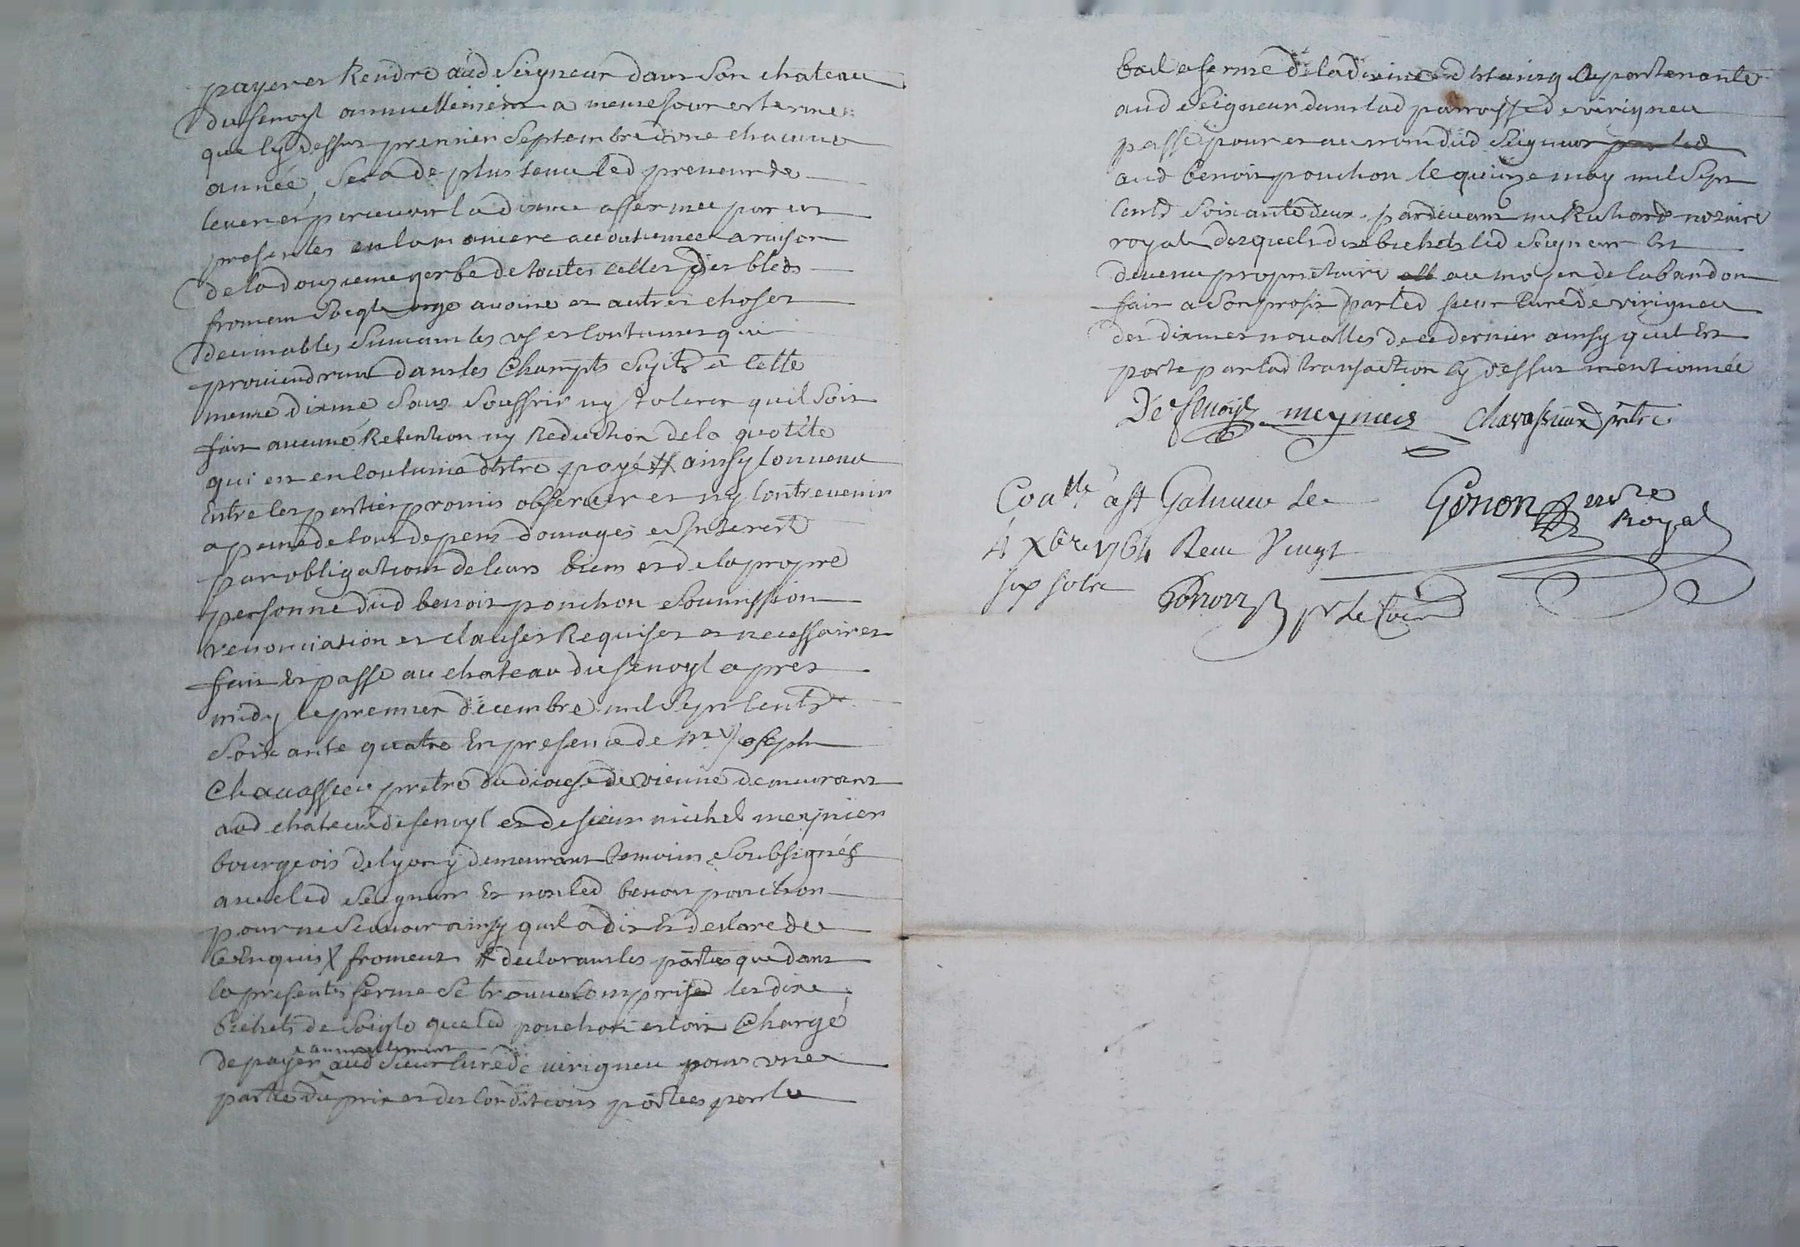 payer et Rendre aud Seigneur dans son chateau
du fenoyl annuellement a meme jour et terme
que cy dessus premier Septembre d'une chacune
année, Sera de plus tenu led preneur de
lever et percevoir la dixme affermée par ces
presentes en la maniere accoutumée a raison
de la douzieme gerbe de toutes celles des bleds
froment Seigle orge avoine et autres choses
decimables, Suivant les us et Coutumes qui
proviendront dans les Champts sujets a cette
meme dixme sans souffrir ny tolerer quil soit
fait aucune Retention ny Reduction de la quotité
qui est en Coutume d'etre payé # ainsy Convenu
Entre les parties promis observer et ny Contrevenir
a peine de tous depens domages et Interets
par obligations de leurs biens et de la propre
personne dud benoit ponchon Soumission
renonciation et clauses Requises et necessaires
fait et passé au chateau du fenoyl apres
midy le premier decembre mil Sept Cents
Soixante quatre En presence de Mre Joseph
Chavassieu pretre du diocese de vienne demeurant
aud chateau de fenoyl et de sieur michel meynier
bourgeois de lyon y demeurant temoins Soubsignés
avec led Seigneur Et non led benoit ponchon
pour ne Scavoir ainsy quil a dit Et declaré de ce
Enquis X froment # declarant les parties que dans
la presente ferme se trouve Compris les dix
bichets de Seigle que led ponchon estoit Chargé
de payer annuellement aud Sieur Curé de virigneu pour une
partie du prix et des Conditions portées par le
bail a ferme de la dixme appartenante
aud Seigneur dans lad parroisse de virigneu
passé pour et au nom dud Seigneur par led
aud benoit ponchon le quinze may mil Sept
Cents Soixante deux pardevant me Richard notaire
royal desquels dix bichets led Seigneur Est
devenu proprietaire au moyen de labandon
fait a Son profit par led sieur Curé de virigneu
des dixmes novalles de ce dernier ainsy quil Est
porté par lad transaction cy dessus mentionnée
De fenoyl meynier Chavassieu prêtre
Coallé a St Galmier Le Gonon nre
4 Xbre 1764 Reçu Vingt Royal
six sols
Gonon pr le Coer